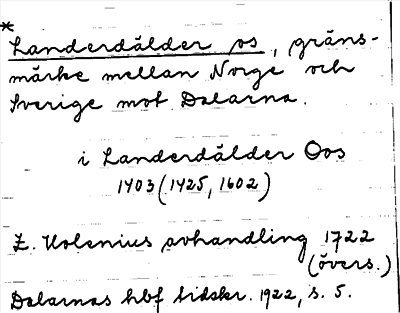 *
Landerdålder os, gräns-
märke mellan Norge och
Sverige mot Dalarna.
i Landerdålder Oos
1403 (1425, 1602)
Z. Holenius avhandling 1722
(övers.)
Dalarnas hbf tidskr. 1922, s. 5.